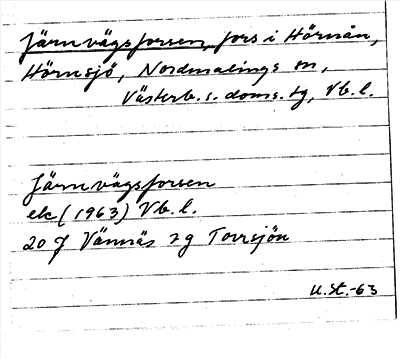 Järnvägsforsen, fors i Hörnån,
Hörnsjö, Nordmalings sn,
Västerb. s. doms. tg, Vb. l.
Järnvägsforsen
ek (1963) Vb. l.
20 J Vännäs sg Torrsjön
U. St. -63